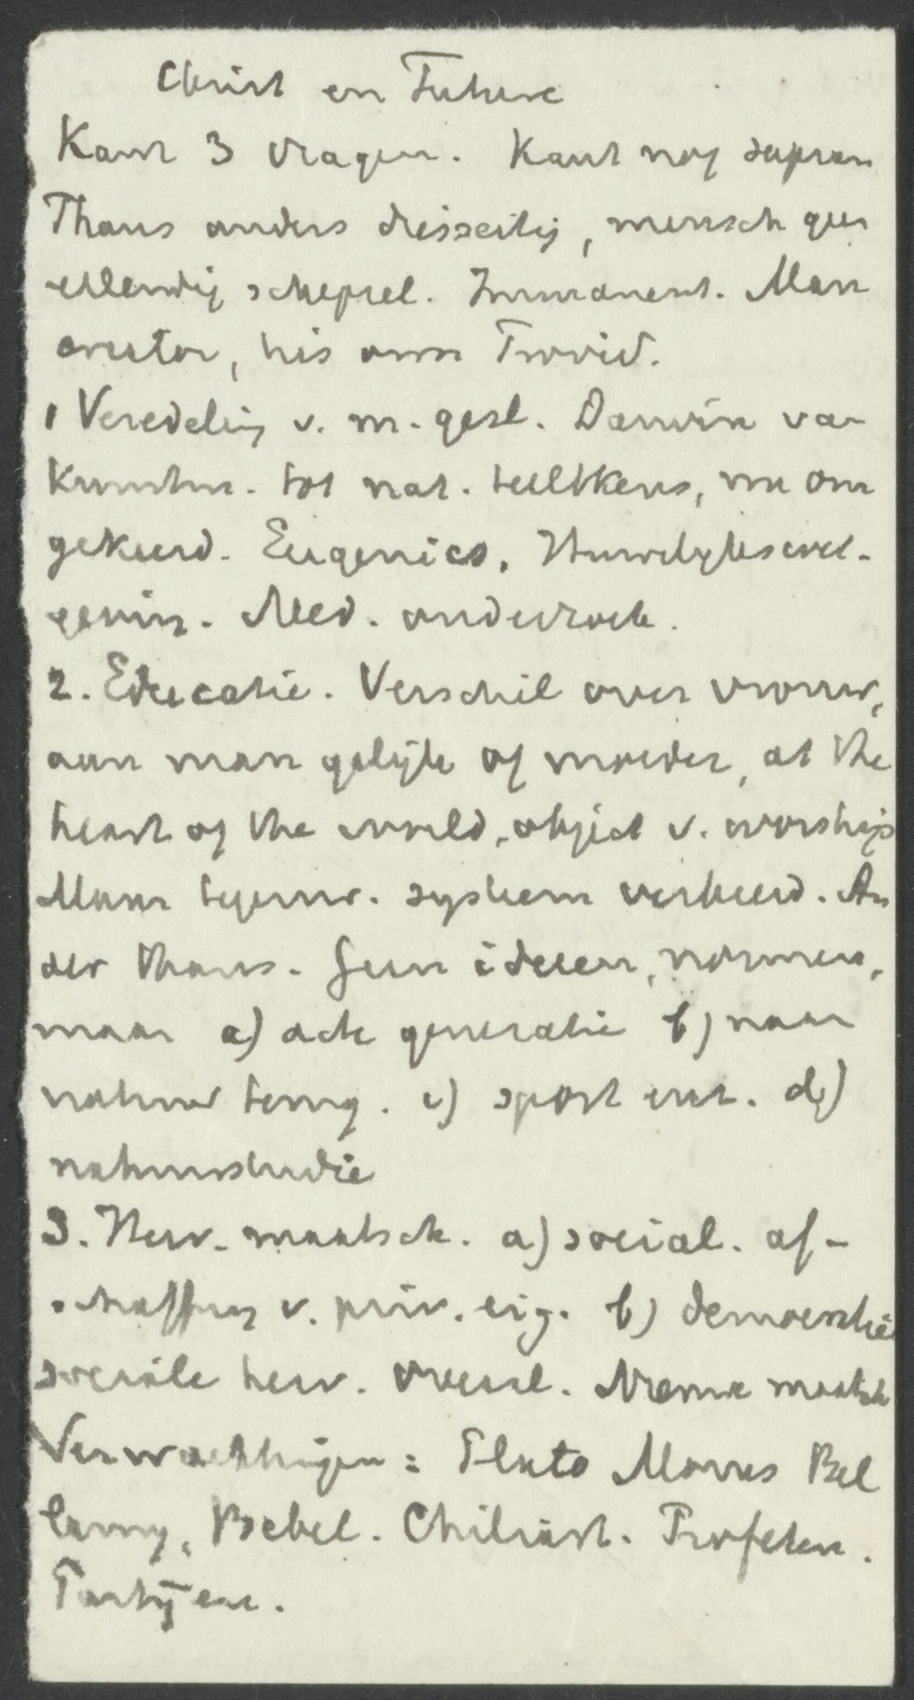 Christ en Future
Kant 3 vragen. Kant nog supran
Thans anders diesseitig, mensch geen
ellendig schepsel. Immanent. Man
creator, his own Provid.
1 Veredeling v. m. gesl. Darwin van
kunstm. tot nat. teeltkeus, nu om
gekeerd. Eugenics. Huwelijks
Med. onderzoek.
2. Educatie. Verschil over vrouw,
aan man gelijk of moeder, at the
heart of the world, object v. worship
Maar tegenw. systeem verkeerd. An
der thans. Geen ideeen, normen,
maar a) ach generatie b) naar
natuur terug. c) sport enz. d)
natuurstudie
3. Herv. maatsch. a) social. af-
schaffing v. priv. eig. b) democratie
sociale herv. Nieuwe maatsch
Verwachtingen: Plato Morus Bel
lamy, Bebel. Chiliast. Profeten.
Partijen.